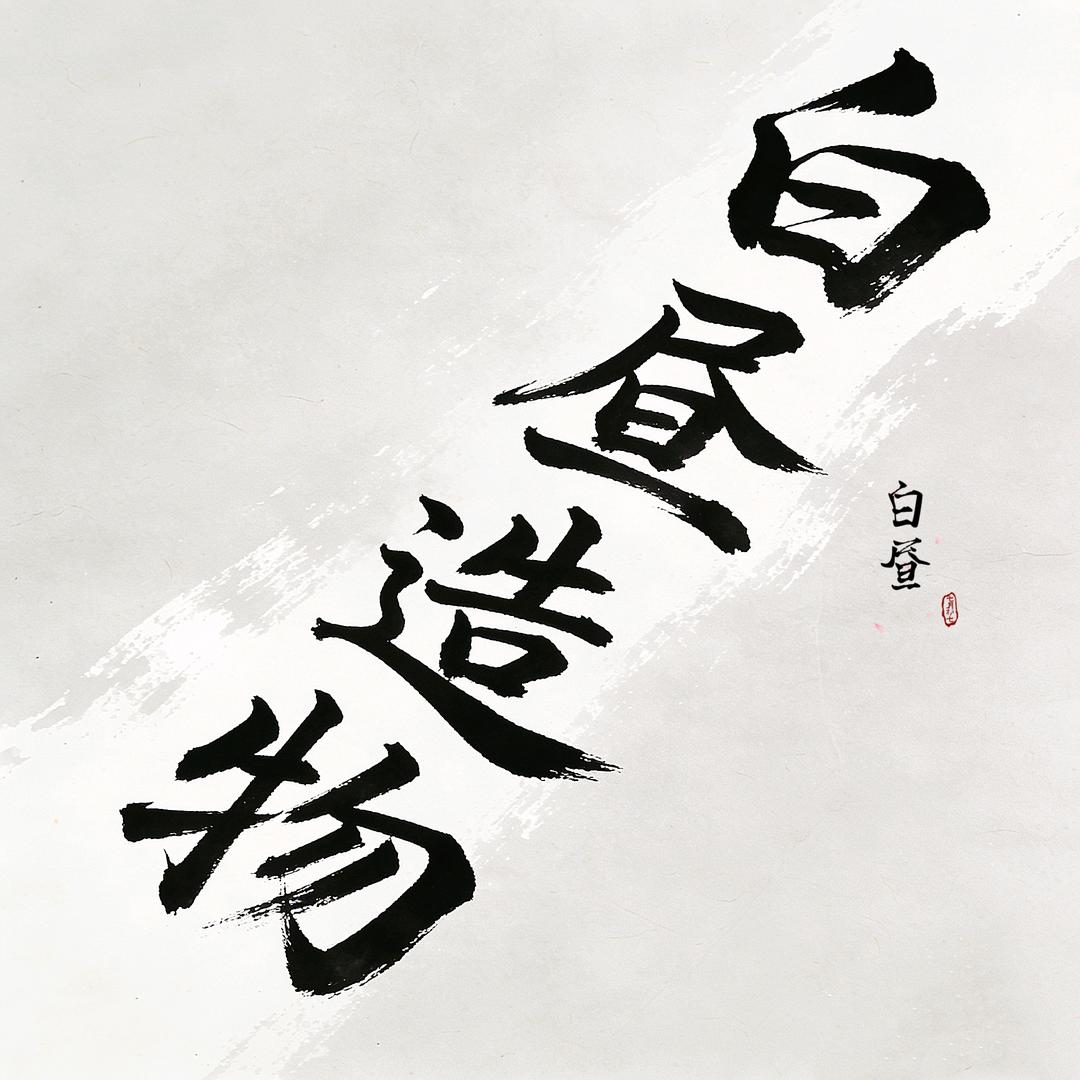 白昼造物
白昼